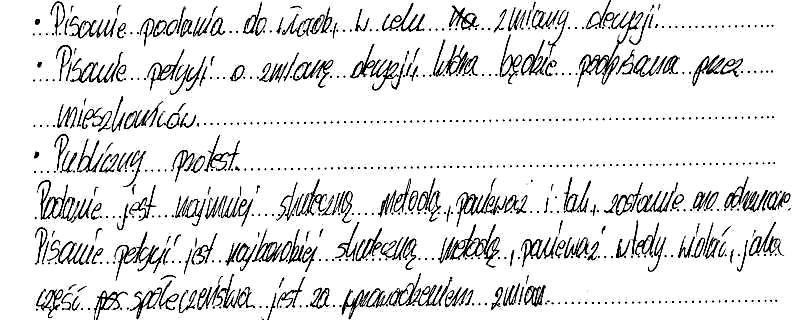 • Pisanie podania do władz, w celu na zmiany decyzji.
• Pisanie petycji o zmianę decyzji, która będzie podpisana przez
mieszkańców.
• Publiczny protest.
Podanie jest najmniej skuteczną metodą, ponieważ i tak, zostanie ono odrzucone.
Pisanie petycji jest najbardziej skuteczną metodą, ponieważ wtedy widać, jaka
część pos społeczeństwa jest za wprowadzeniem zmian.